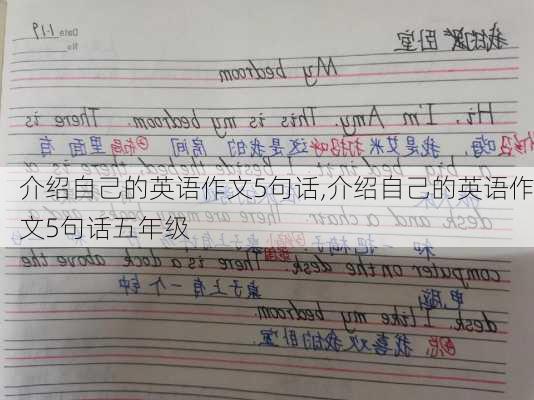 Date 1-19
No.
卧室
My bedroom
Hi, I'm Amy. This is my bedroom. There is
嗨, 我是艾米 这是我的 房间 里面 有
a big bed in it. beside the bed, there is a
介绍自己的英语作文5句话,介绍自己的英语作
文5句话五年级
desk and a chair. There are
和 一把椅子 桌子上有
computer on the desk. There is a clock above the
电脑 桌子上有一个钟
desk. I like my bedroom.
我喜欢我的卧室.